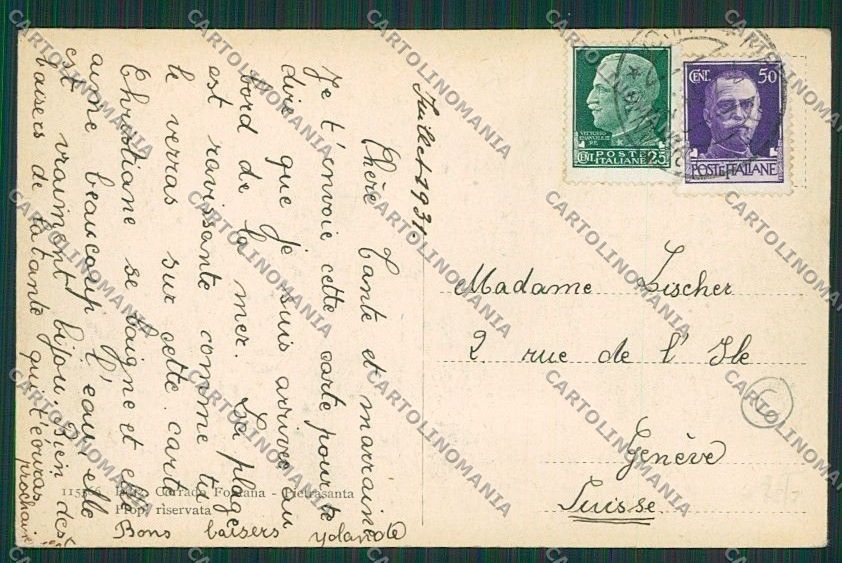 Juillet 1931.
Chère tante et marraine
Je t'envoie cette carte pour te
dire que je suis arrivée au
bord de la mer. La plage
est ravissante comme tu
le verras sur cette carte
Christiane se baigne et elle
aime beaucoup l'eau, elle
est vraiment bijou. Bien des
baisers de ta tante qui t'écrira
prochain
Bons baisers Yolande
Madame Lischer
2 rue de l'Ile
Genève
Suisse
VITTORIO
EMANUELE III
RE
POSTE
CENT. ITALIANE 25
CENT. 50
POSTE ITALIANE
Corrado Fontana - Pietrasanta
Prop. riservata
CARTOLINOMANIA